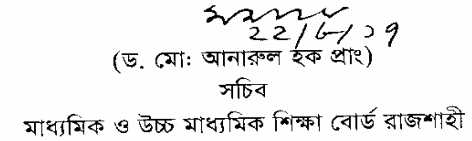 22/6/17
(ড. মো: আনারুল হক প্রাং)
সচিব
মাধ্যমিক ও উচ্চ মাধ্যমিক শিক্ষা বোর্ড রাজশাহী